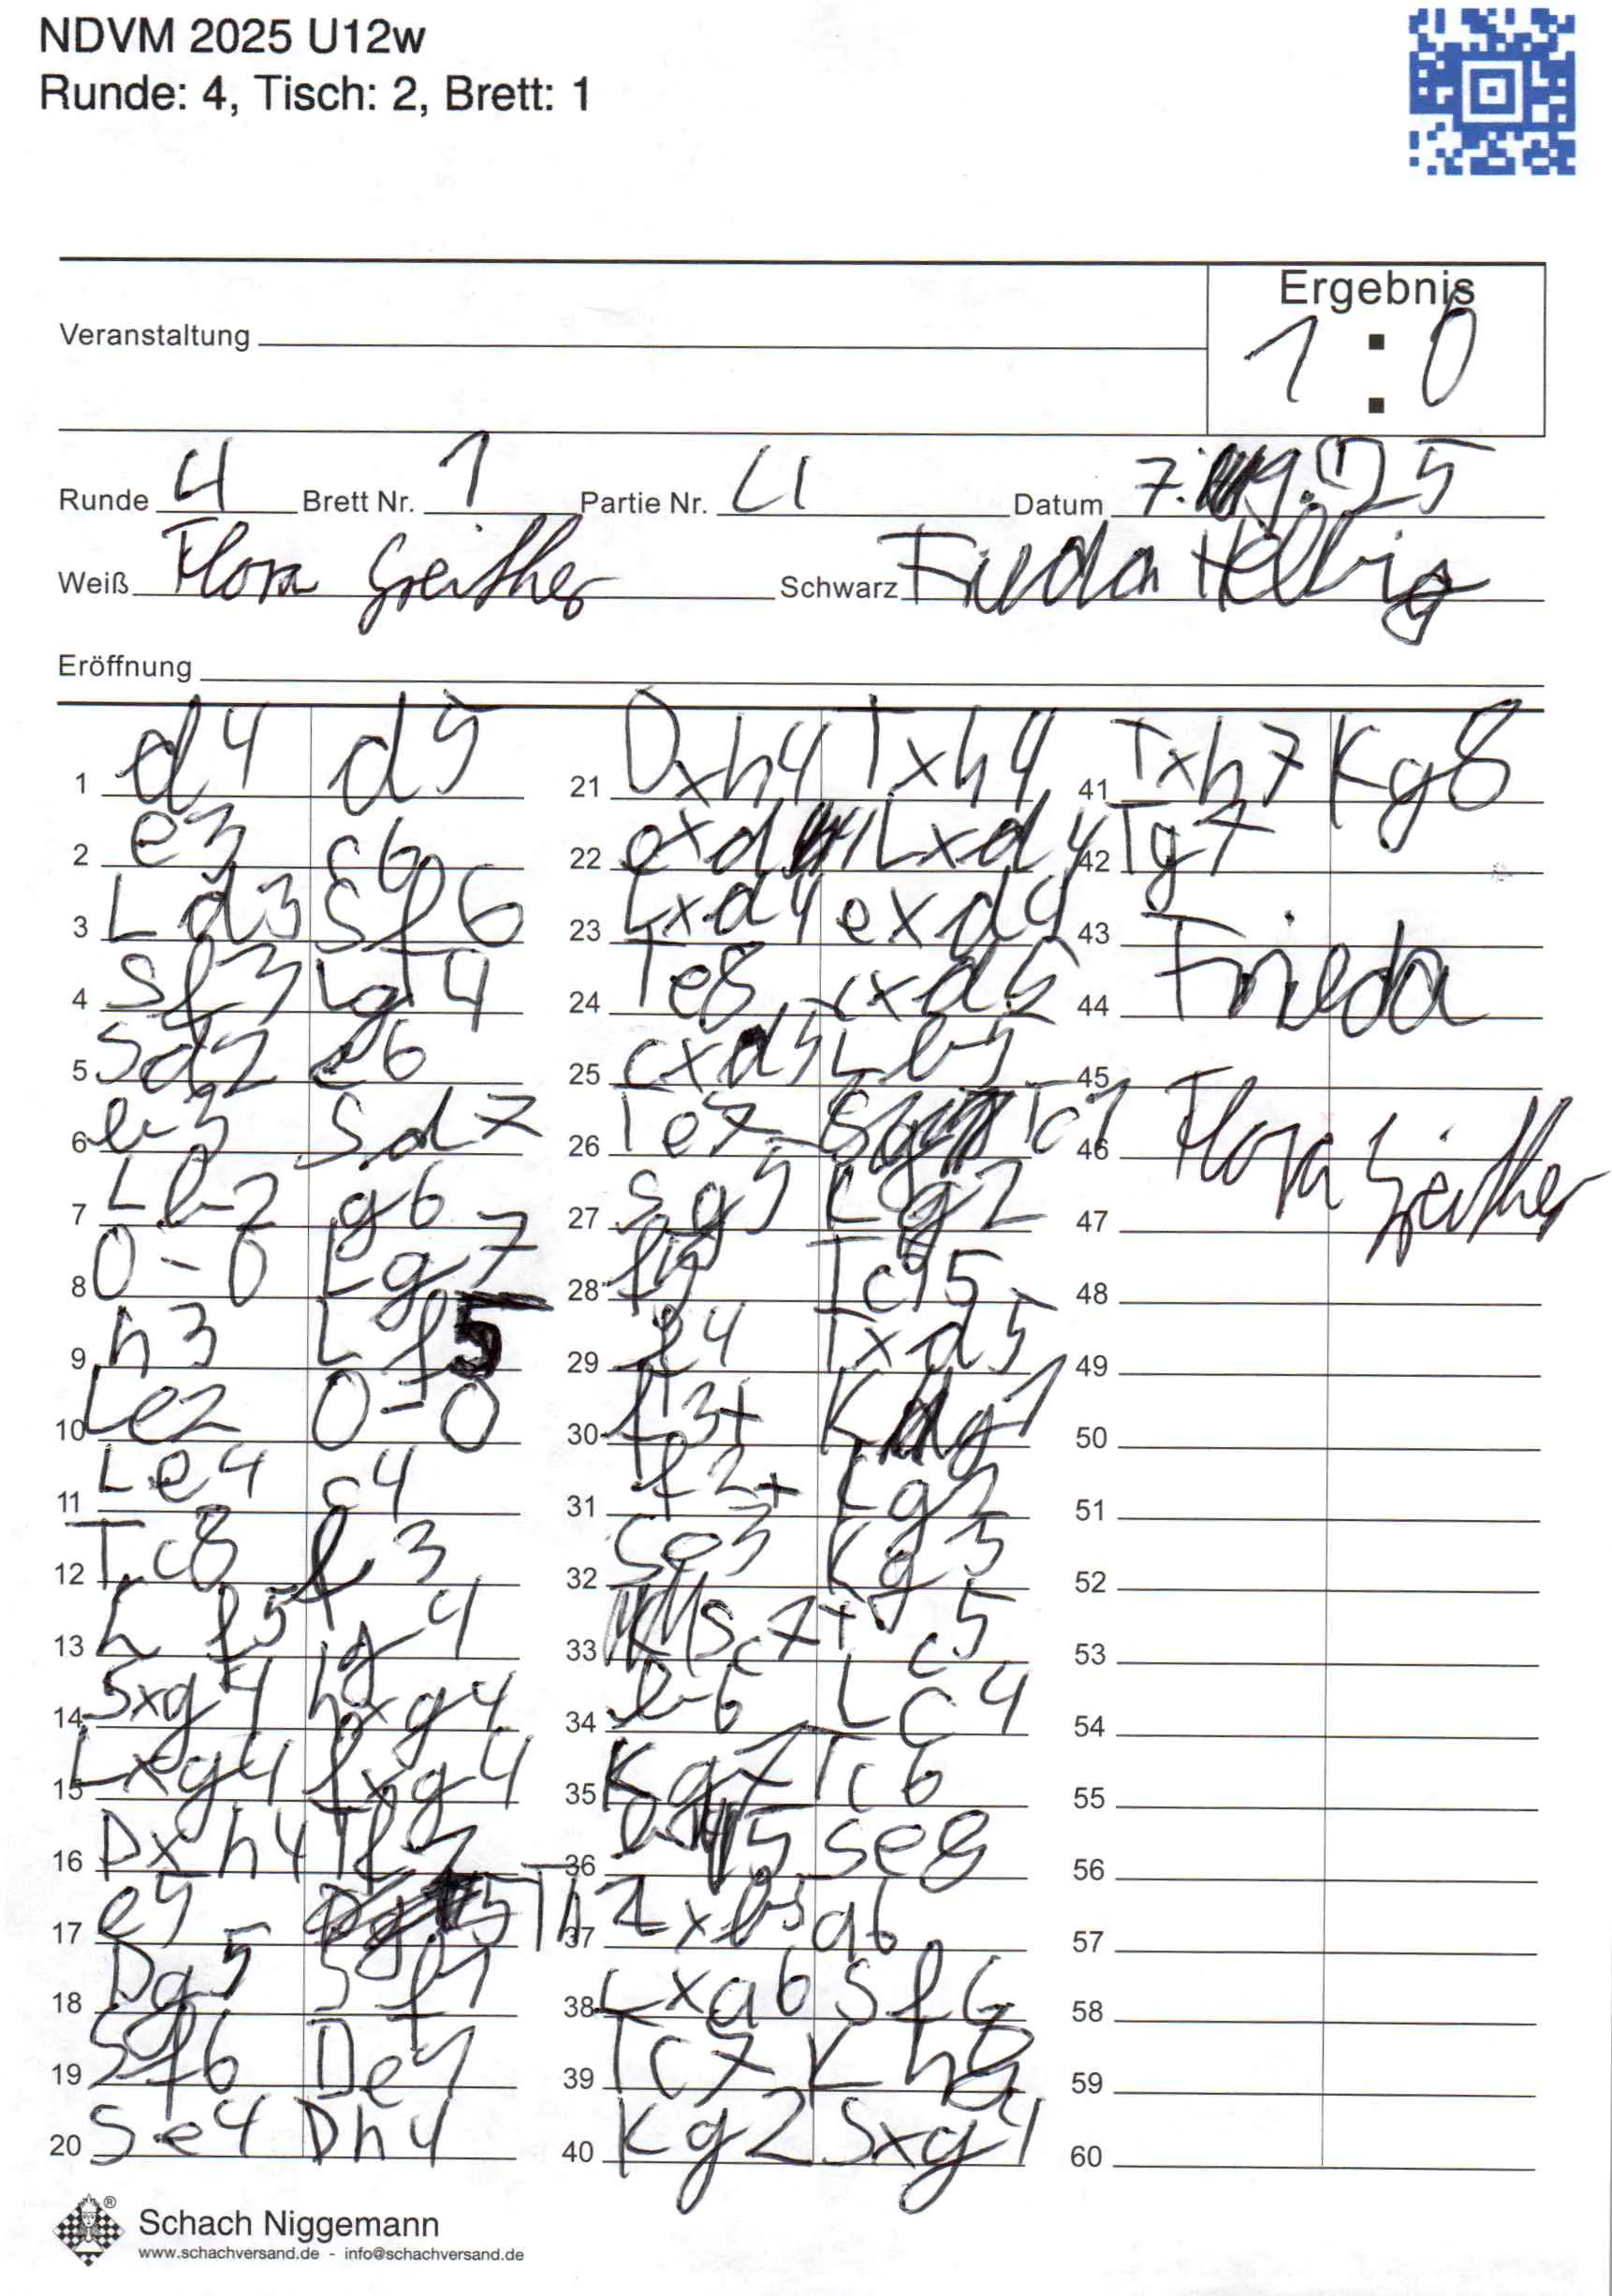 NDVM 2025 U12w
Runde: 4, Tisch: 2, Brett: 1
Ergebnis
Veranstaltung 1 : 0
Runde 4 Brett Nr. 1 Partie Nr. 4 Datum 7. 9. 25
Weiß Flora Greither Schwarz Frieda Helbig
Eröffnung
1 d4 d5
2 e3 c6
3 Ld3 Sf6
4 Sf3 Lg4
5 Sd2 e6
6 b3 Sd7
7 Lb2 g6
8 0-0 Lg7
9 h3 Lf5
10 Le2 0-0
11 Le4 c4
12 Tc8 f3
13 Lf5 hg4
14 Sxg4 hxg4
15 Lxg4 fxg4
16 Dxh4 Tf3
17 e5 Th
18 Dg5 Sf1
19 Sf6 De1
20 Se4 Dh4
21 Dxh4 Txh4
22 exd Lxd4
23 Lxd4 exd4
24 Te8 cxd5
25 cxd5 Lb5
26 Te7 Tc1
27 Sg5 Lg2
28 Tc5
29 f4 Txd5
30 f3+ Kg1
31 f2+ Kg2
32 Se3 Kg3
33 Sc7+ c5
34 b6 Lc4
35 Kg7 Tc6
36 b5 Se8
37 Lxb5 a6
38 Lxa6 Sf6
39 Tc7 Kh8
40 Kg2 Sxg4
41 Txh7 Kg8
42 Tg7
43
44 Frieda
45
46 Flora Greither
47
48
49
50
51
52
53
54
55
56
57
58
59
60
Schach Niggemann
www.schachversand.de - info@schachversand.de